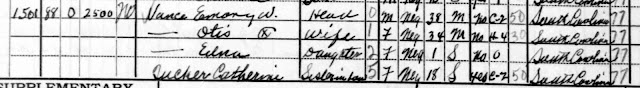 1501 88 O 2500 no Vance Emory W. Head 0 M Neg 38 M no C-2 50 South Carolina 77
— Otis Ⓧ Wife 1 F Neg 34 M no H-4 30 South Carolina 77
— Edna Daughter 2 F Neg 1 S no 0 South Carolina 77
Tucker Catherine Sister in law 5 F Neg 18 S yes C-2 50 South Carolina 77
SUPPLEMENTARY